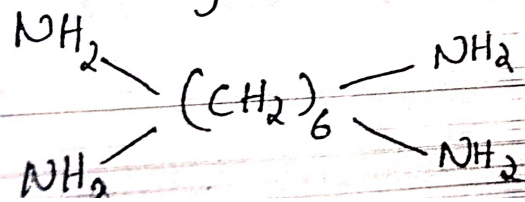 NH₂ NH₂
(CH₂)₆
NH₂ NH₂